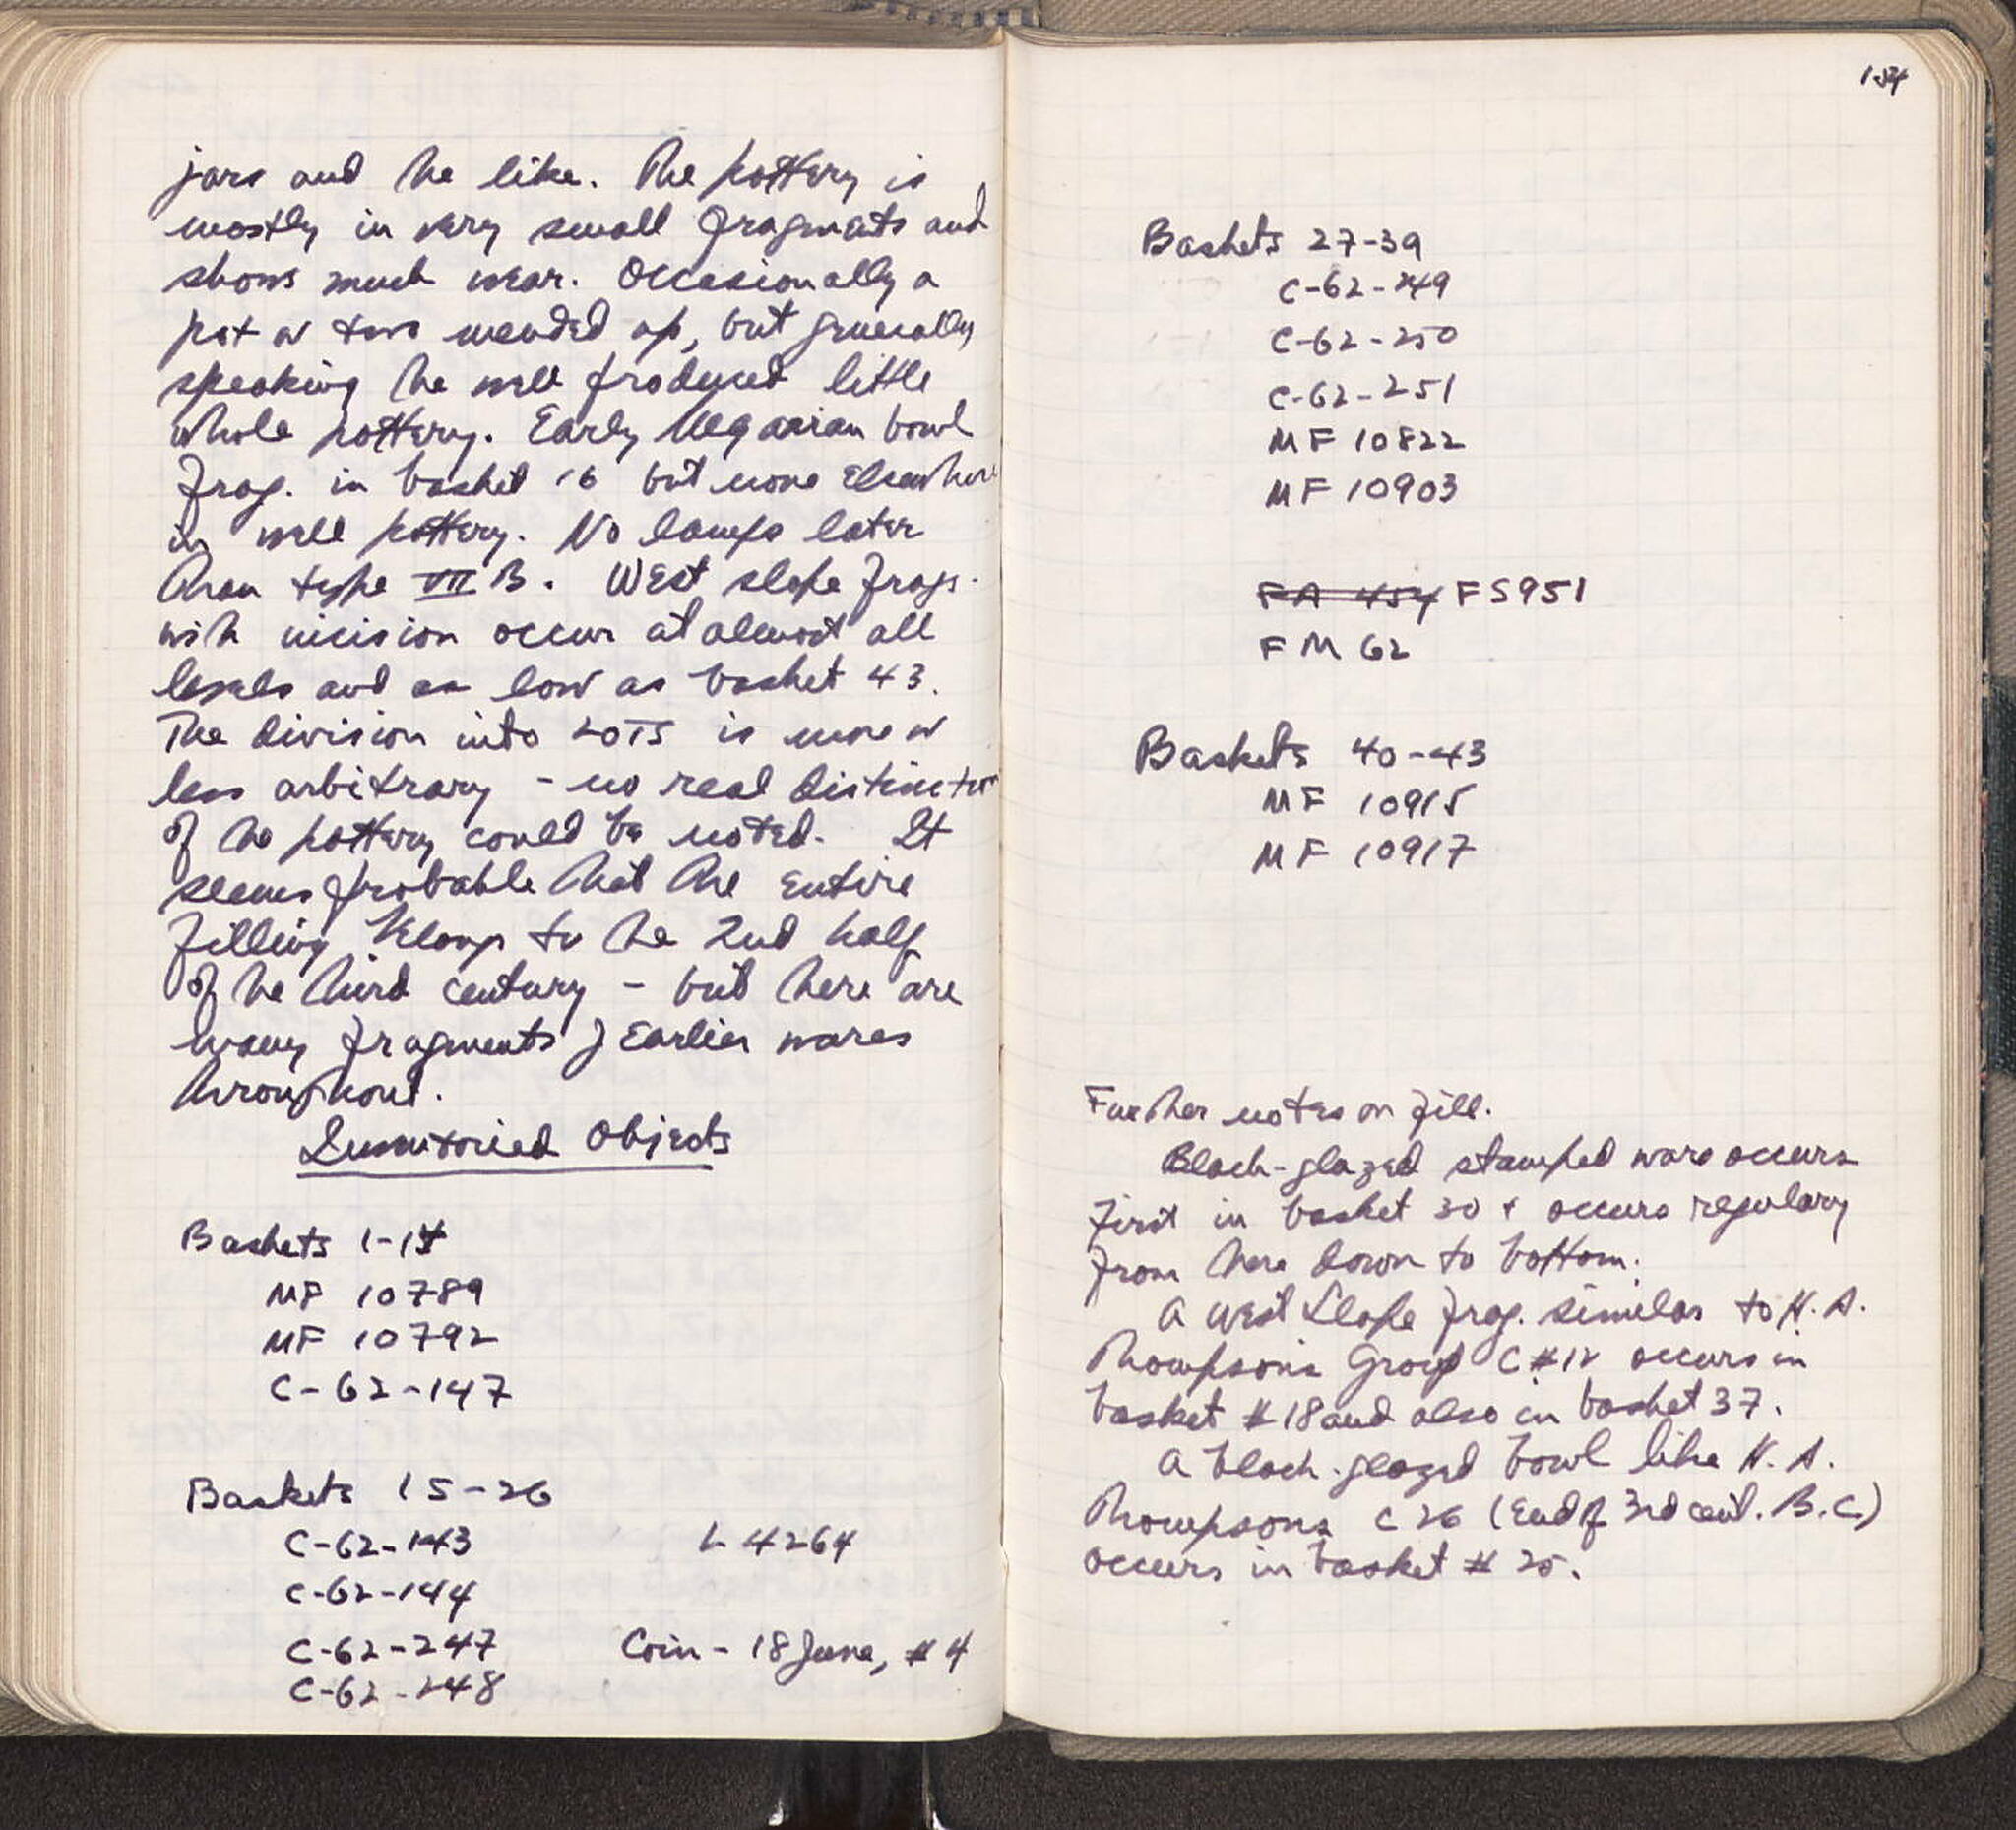 jars and the like. The pottery is
mostly in very small fragments and
shows much wear. Occasionally a
pot or two mended up, but generally
speaking the well produced little
whole pottery. Early Megarian bowl
frag. in basket 16 but none elsewhere
in well pottery. No lamps later
than type VII B. West slope frags.
with incision occur at almost all
levels and as low as basket 43.
The division into LOTS is more or
less arbitrary - no real distinction
of the pottery could be noted. It
seems probable that the entire
filling belongs to the 2nd half
of the third century - but there are
many fragments of Earlier wares
throughout.
Inventoried Objects
Baskets 1-14
MF 10789
MF 10792
C-62-147
Baskets 15-26
C-62-143 L 4264
C-62-144
C-62-247 Coin - 18 June, #4
C-62-248
154
Baskets 27-39
C-62-249
C-62-250
C-62-251
MF 10822
MF 10903
FA 454 FS951
FM 62
Baskets 40-43
MF 10915
MF 10917
Further notes on fill.
Black-glazed stamped ware occurs
first in basket 30 + occurs regulary
from there down to bottom.
A West Slope frag. similar to H. A.
Thompson's Group C #12 occurs in
basket #18 and also in basket 37.
A black-glazed bowl like H. A.
Thompsons C 26 (End of 3rd cent. B.C.)
occurs in basket # 25.